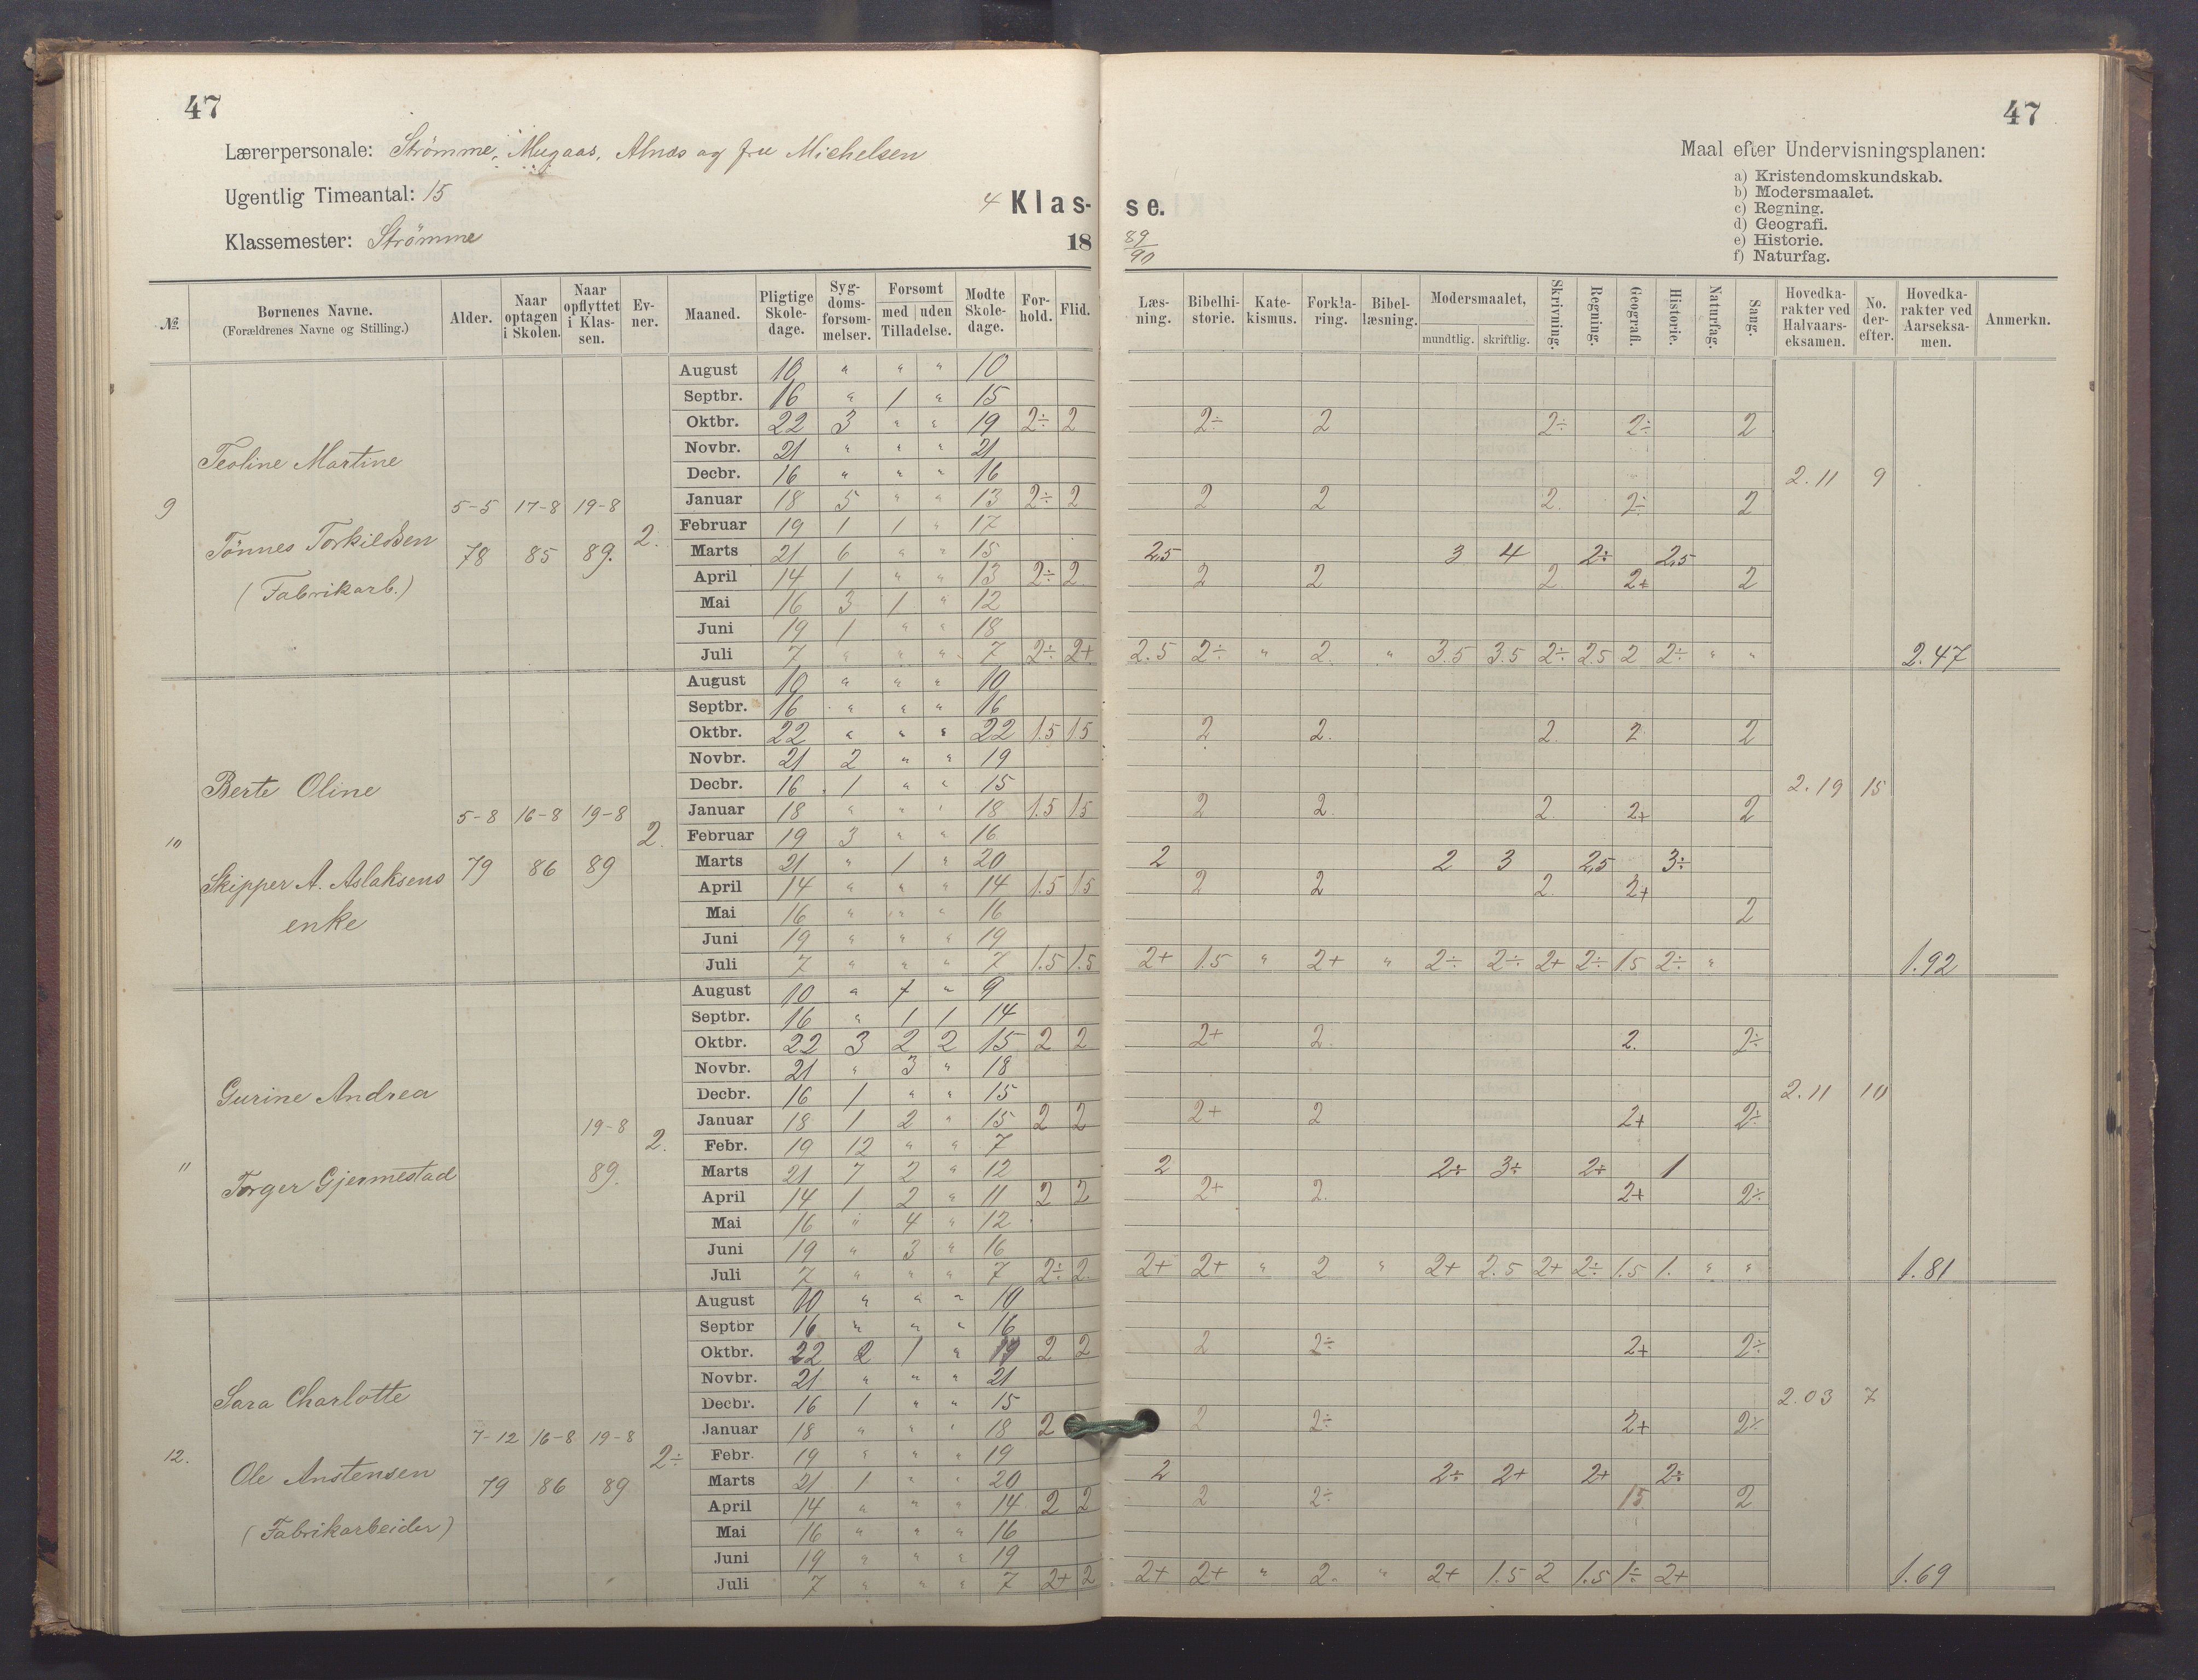 47
47
Lærerpersonale: Strömme, Mugaas, Alnæs og fru Michelsen
Ugentlig Timeantal: 15
4 Klas-
se.
Klassemester: Strömme
18
89
90
Maal efter Undervisningsplanen:
a) Kristendomskundskab.
b) Modersmaalet.
c) Regning.
d) Geografi.
e) Historie.
f) Naturfag.
№ Bornenes Navne. (Forældrenes Navne og Stilling.) Alder. Naar optagen i Skolen. Naar opflyttet i Klassen. Evner. Maaned. Pligtige Skoledage. Sygdomsforsommelser. Forsomt med uden Tilladelse. Modte Skoledage. Forhold. Flid. Læsning. Bibelhistorie. Katekismus. Forklaring. Bibellæsning. Modersmaalet, mundtlig. skriftlig. Skrivning. Regning. Geografi. Historie. Naturfag. Sang. Hovedkarakter ved Halvaarseksamen. No. derefter. Hovedkarakter ved Aarseksamen. Anmerkn.
9 Teoline Martine
Tönnes Torkildsen
(Fabrikarb.)
5-5 17-8 19-8
78 85 89. 2.
August 10 " " " 10
Septbr. 16 " 1 " 15
Oktbr. 22 3 " " 19 2÷ 2 2÷ 2 2÷ 2÷ 2
Novbr. 21 " " " 21
Decbr. 16 " " " 16 2.11 9
Januar 18 5 " " 13 2÷ 2 2 2 2. 2÷ 2
Februar 19 1 1 " 17
Marts 21 6 " " 15 2,5 3 4 2÷ 2,5
April 14 1 " " 13 2÷ 2 2 2 2 2+ 2
Mai 16 3 1 " 12
Juni 19 1 " " 18
Juli 7 " " " 7 2÷ 2+ 2.5 2÷ " 2. " 3.5 3.5 2÷ 2.5 2 2÷ " " 2.47
10 Berte Oline
Skipper A. Aslaksens
enke
5-8 16-8 19-8
79 86 89 2.
August 10 " " " 10
Septbr. 16 " " " 16
Oktbr. 22 " " " 22 1.5 15 2 2. 2. 2 2
Novbr. 21 2 " " 19
Decbr. 16 1 " " 15 2.19 15
Januar 18 " " " 18 1.5 15 2 2. 2. 2+ 2
Februar 19 3 " " 16
Marts 21 " 1 " 20 2 2 3 2,5 3÷
April 14 " " " 14 1.5 15 2 2 2. 2+
Mai 16 " " " 16 2
Juni 19 " " " 19
Juli 7 " " " 7 1.5 1.5 2+ 1.5 " 2+ " 2÷ 2÷ 2+ 2÷ 15 2÷ " 1.92
11 Gurine Andrea
Torger Gjermestad
19-8
89. 2.
August 10 " 1 " 9
Septbr. 16 " 1 1 14
Oktbr. 22 3 2 2 15 2 2 2+ 2 2. 2÷
Novbr. 21 " 3 " 18
Decbr. 16 1 " " 15 2.11 10
Januar 18 1 2 " 15 2 2 2+ 2 2+ 2÷
Febr. 19 12 " " 7
Marts 21 7 2 " 12 2 2÷ 3÷ 2+ 1
April 14 1 2 " 11 2 2 2+ 2. 2+ 2÷
Mai 16 " 4 " 12
Juni 19 " 3 " 16
Juli 7 " " " 7 2÷ 2 2+ 2+ " 2 " 2+ 2.5 2+ 2÷ 1.5 1. " " 1.81
12. Sara Charlotte
Ole Anstensen
(Fabrikarbeider)
7-12 16-8 19-8
79 86 89 2÷
August 10 " " " 10
Septbr 16 " " " 16
Oktbr. 22 2 1 " 19 2 2 2 2÷ 2+ 2÷
Novbr. 21 " " " 21
Decbr. 16 1 " " 15 2.03 7
Januar 18 " " " 18 2 2 2÷ 2+ 2÷
Febr. 19 " " " 19
Marts 21 1 " " 20 2 2÷ 2+ 2+ 2÷
April 14 " " " 14 2 2 2 2÷ 15 2
Mai 16 " " " 16
Juni 19 " " " 19
Juli 7 " " " 7 2+ 2 2+ 2+ " 2. " 2+ 1.5 2 1.5 1÷ 2+ 1.69